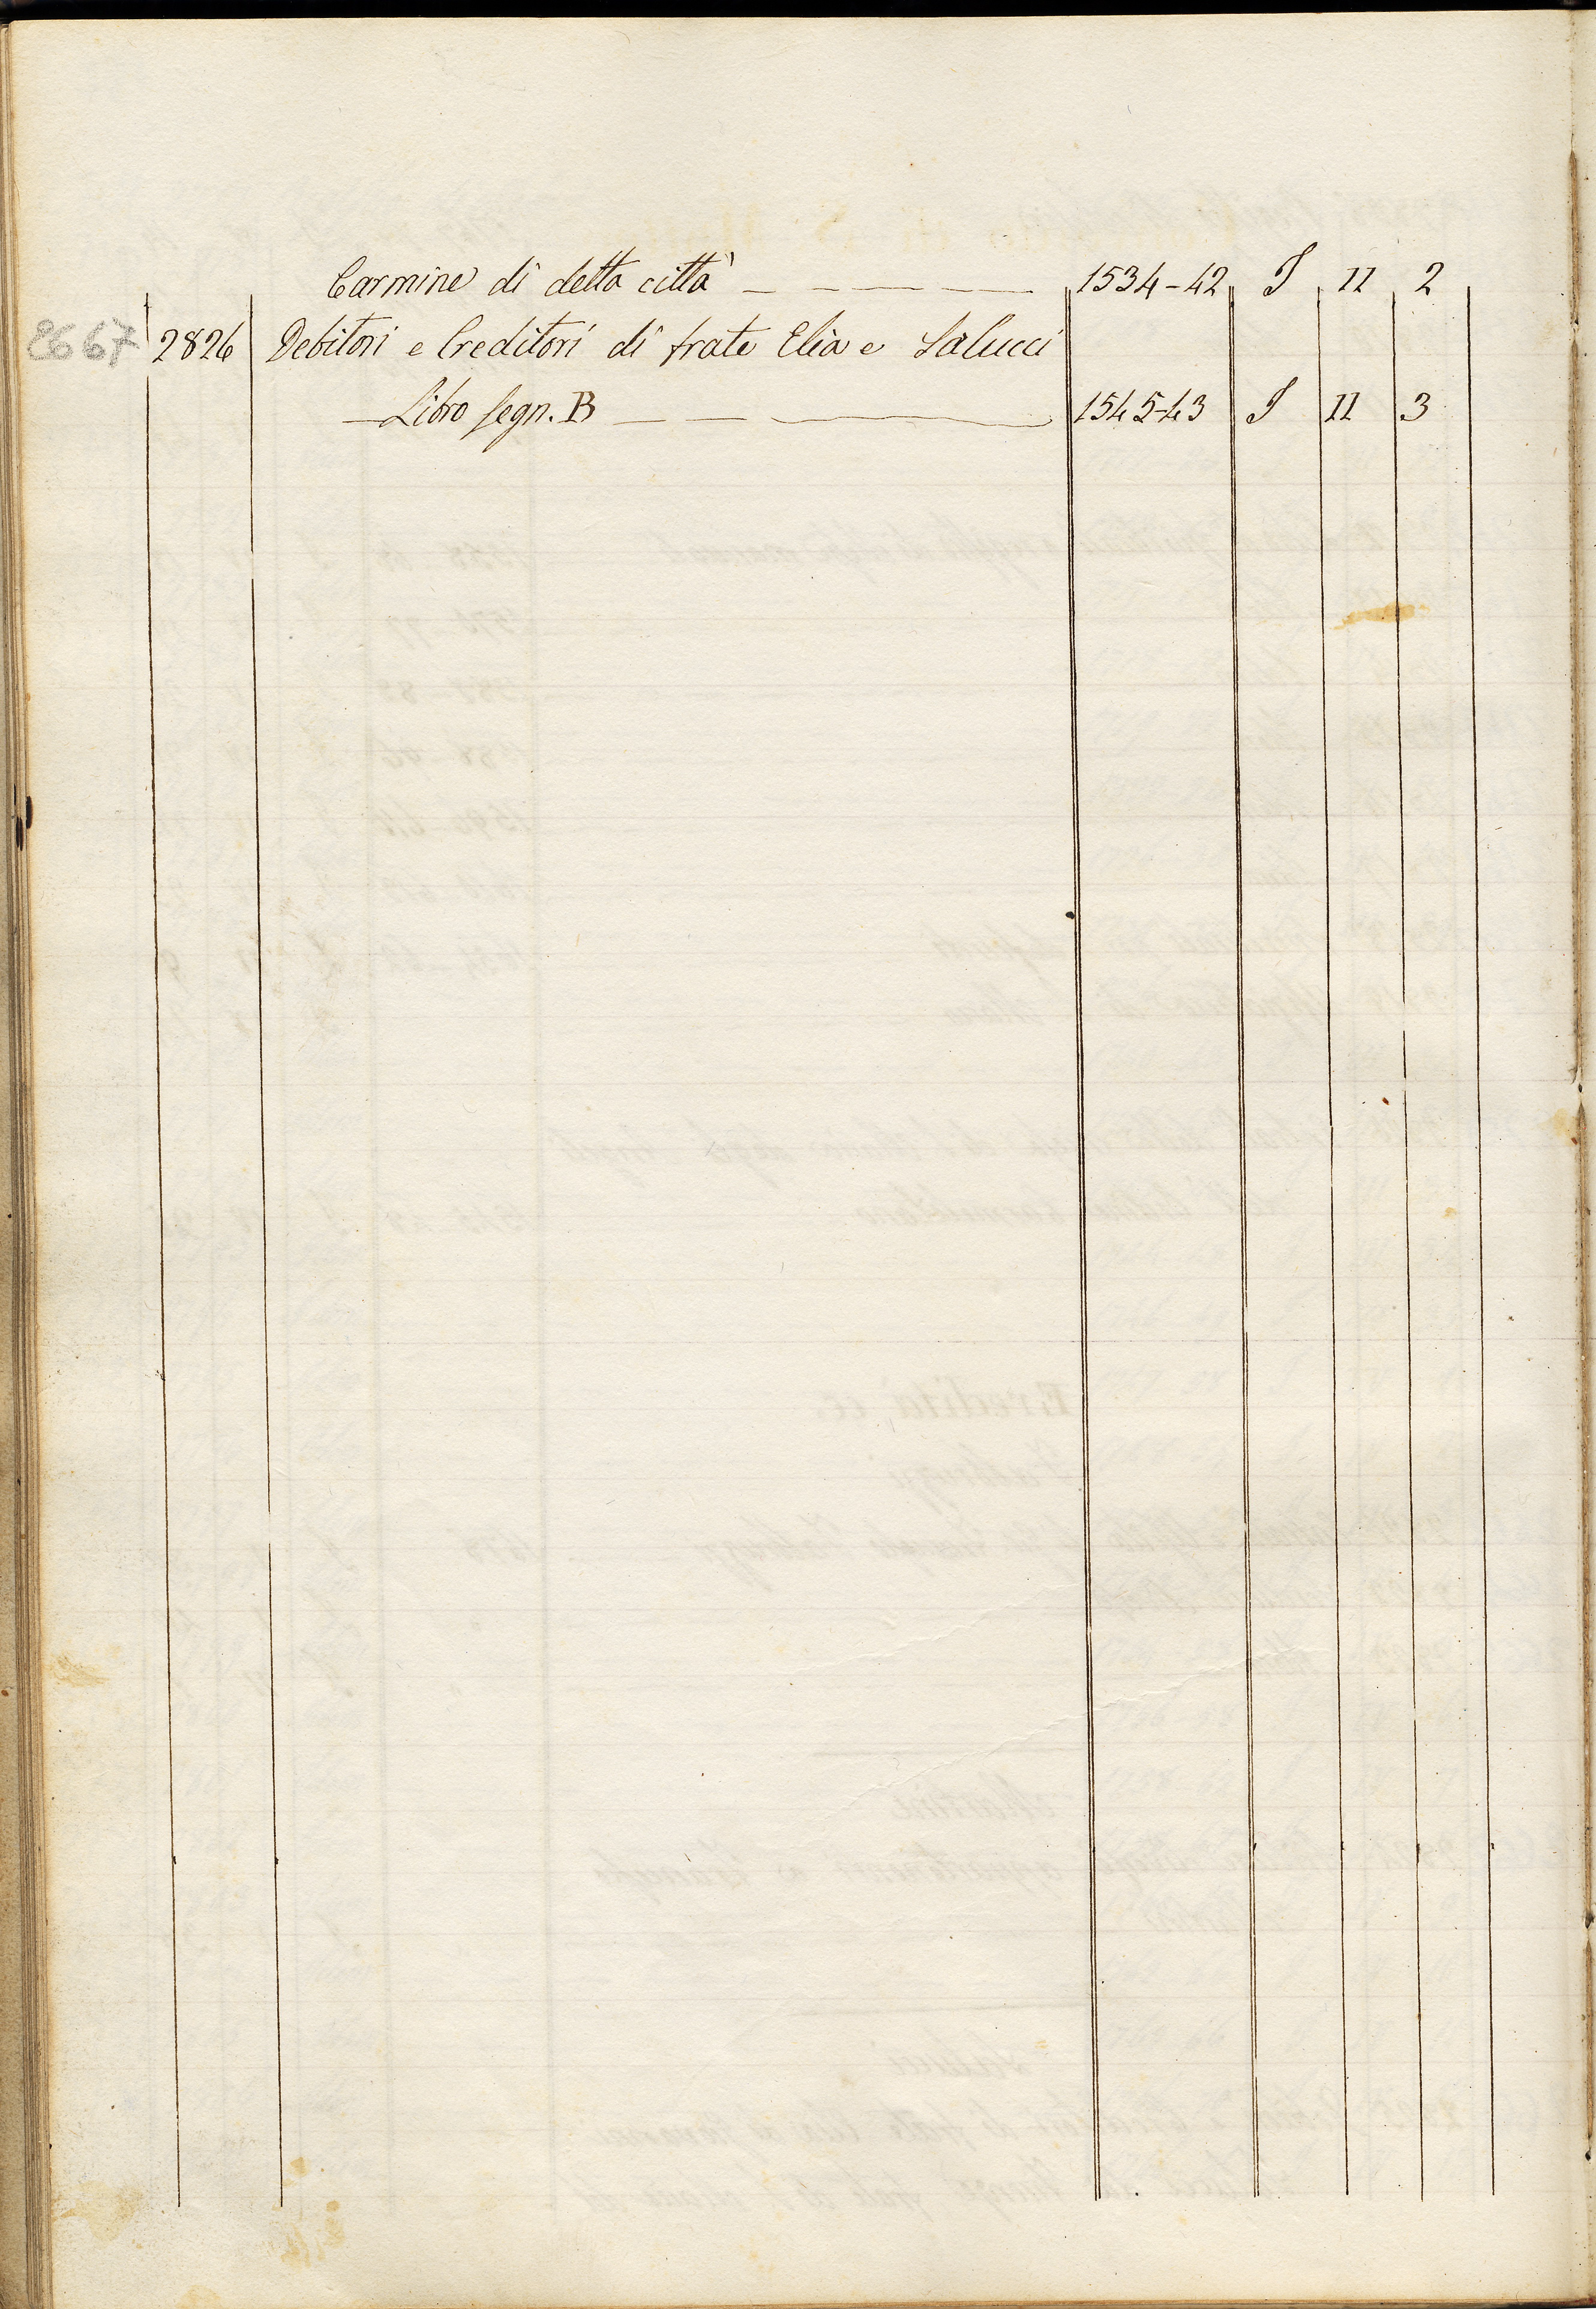 Carmine di detta città — — — — — 1534-42 I 11 2
2667 2826 Debitori e Creditori di frate Elia e Salucci
— Libro segn. B — — — 1545-43 I 11 3